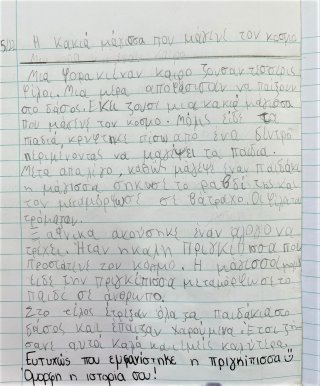 5/12
Η κακιά μάγισσα που μάγευε τον κόσμο
Μια φορά κι έναν καιρό ζούσαν τέσσερις
φίλοι. Μια μέρα αποφάσισαν να παίξουν
στο δάσος. Εκει ζουσε μια κακιά μάγισσα
που μάγευε τον κοσμο. Μόλις είδε τα
παιδιά, κρύφτηκε πίσω από ένα δέντρο
περιμένοντας να μαγέψει τα παιδιά.
Μετα από λίγο, καθώς μάγεψε έναν παιδάκι
η μάγισσα σηκωσε το ραβδί της και
τον μεταμόρφωσε σε βάτραχο. Οι φίλοι
τρόμαξαν.
Ξαφνικα ακούστηκε έναν άλογο να
τρέχει. Ήταν η καλή πριγκίπισσα που
προστάτευε τον κόσμο. Η μάγισσα μόλις
είδε την πριγκίπισσα μεταμόρφωσε το
παιδί σε άνθρωπο.
Στο τέλος έτρεξαν όλα τα παιδάκια στο
δάσος και έπαιξαν χαρούμενα. Έτσι ζή-
σανε αυτοί καλά και εμείς καλύτερα.
Ευτυχώς που εμφανίστηκε η πριγκίπισσα
Όμορφη η ιστορία σου!